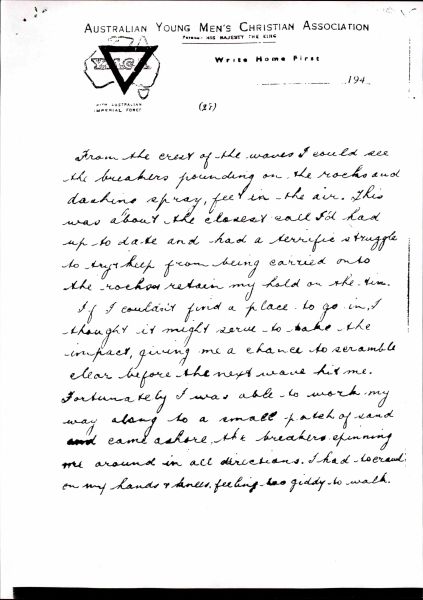 AUSTRALIAN YOUNG MEN'S CHRISTIAN ASSOCIATION
PATRON: HIS MAJESTY THE KING
Y.M.C.A.
Write Home First
WITH AUSTRALIAN
IMPERIAL FORCE
194
From the crest of the waves I could see
the breakers pounding on the rocks and
dashing spray, feet in the air. This
was about the closest call I'd had
up to date and had a terrific struggle
to try & keep from being carried onto
the rocks & retain my hold on the tin.
If I couldn't find a place to go in, I
thought it might serve to take the
impact, giving me a chance to scramble
clear before the next wave hit me.
Fortunately I was able to work my
way along to a small patch of sand
and came ashore, the breakers spinning
me around in all directions. I had to crawl
on my hands & knees, feeling too giddy to walk.